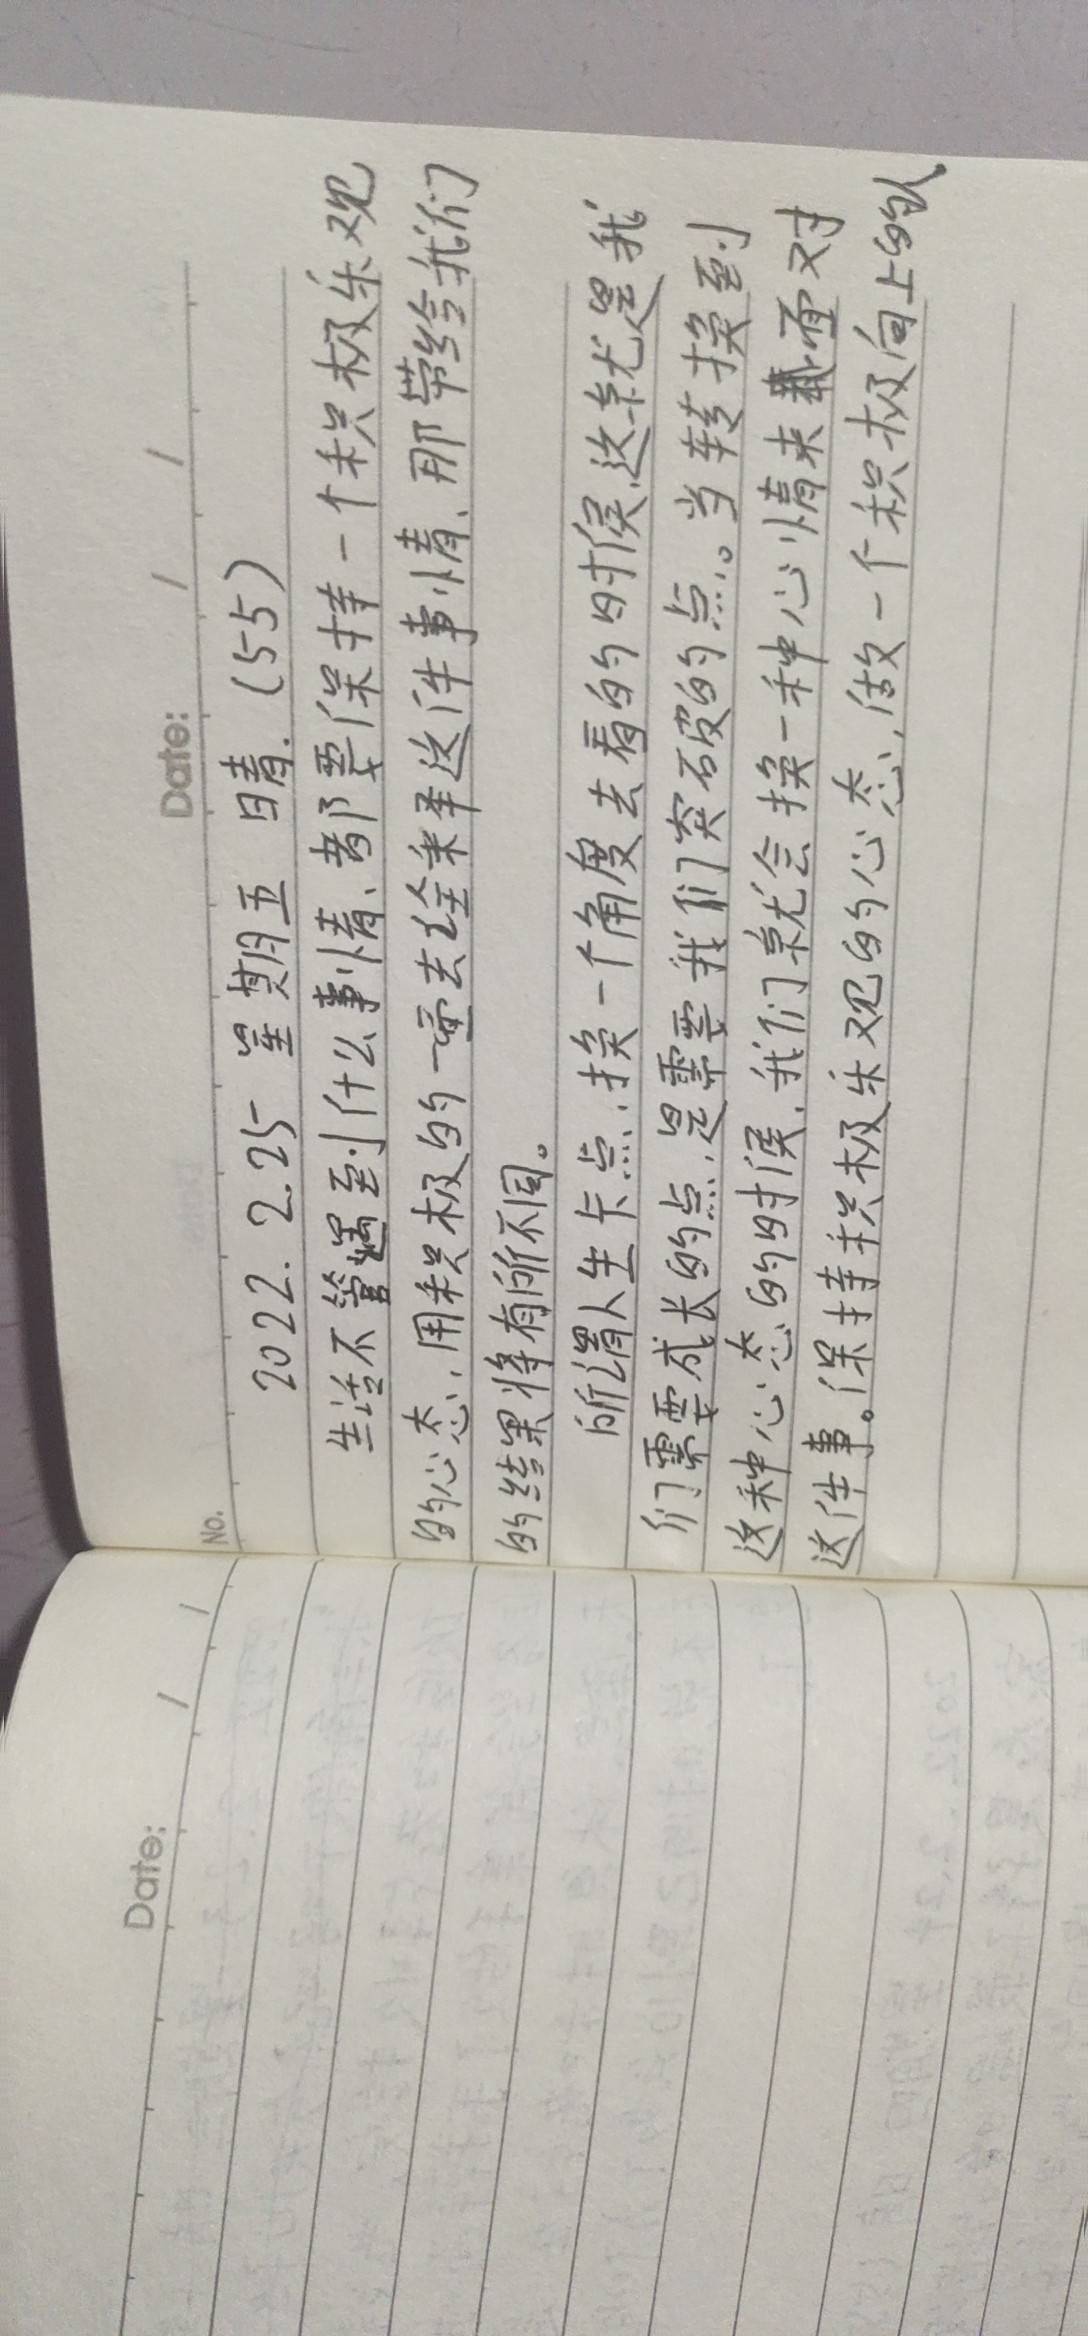 No.
Date: / /
2022. 2.25 星期五 晴. (55)
生活不管遇到什么事情、都要保持一个积极乐观
的心态、用积极的一面去诠释这件事情、那带给我们
的结果将有所不同。
所谓人生卡点、换一个角度去看的时候、这就是我
们需要成长的点、是需要我们突破的点。当转换到
这种心态的时候、我们就会换一种心情来面对
这件事。保持积极乐观的心态、做一个积极向上的人。
Date: / /